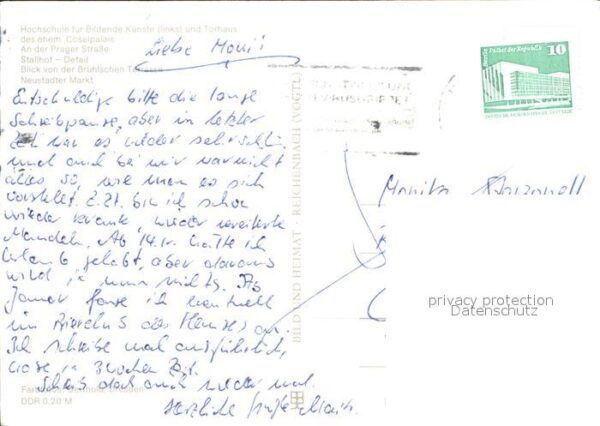 Hochschule für Bildende Künste (links) und Torhaus
des ehem. Coselpalais
An der Prager Straße
Stallhof – Detail
Blick von der Brühlschen Terrasse
Neustädter Markt
Liebe Moni!
Entschuldige bitte die lange
Schreibpause, aber in letzter
Zeit war es wieder sehr
und auch bei mir war nicht
alles so, wie man es sich
vorstellt. Z. Zt. bin ich schon
wieder krank, wieder vereiterte
Mandeln. Ab 14. hätte ich
Urlaub gehabt, aber daraus
wird ja nun nichts. Ab
Januar fange ich eventuell
im des an.
Ich schreibe mal ausführlich,
in Zeit.
Schreib doch auch wieder mal.
Herzliche Grüße
DDR 0,20 M
BILD UND HEIMAT · REICHENBACH (VOGTL)
Berlin, Palast der Republik
10
DEUTSCHE DEMOKRATISCHE REPUBLIK
Monika
privacy protection
Datenschutz